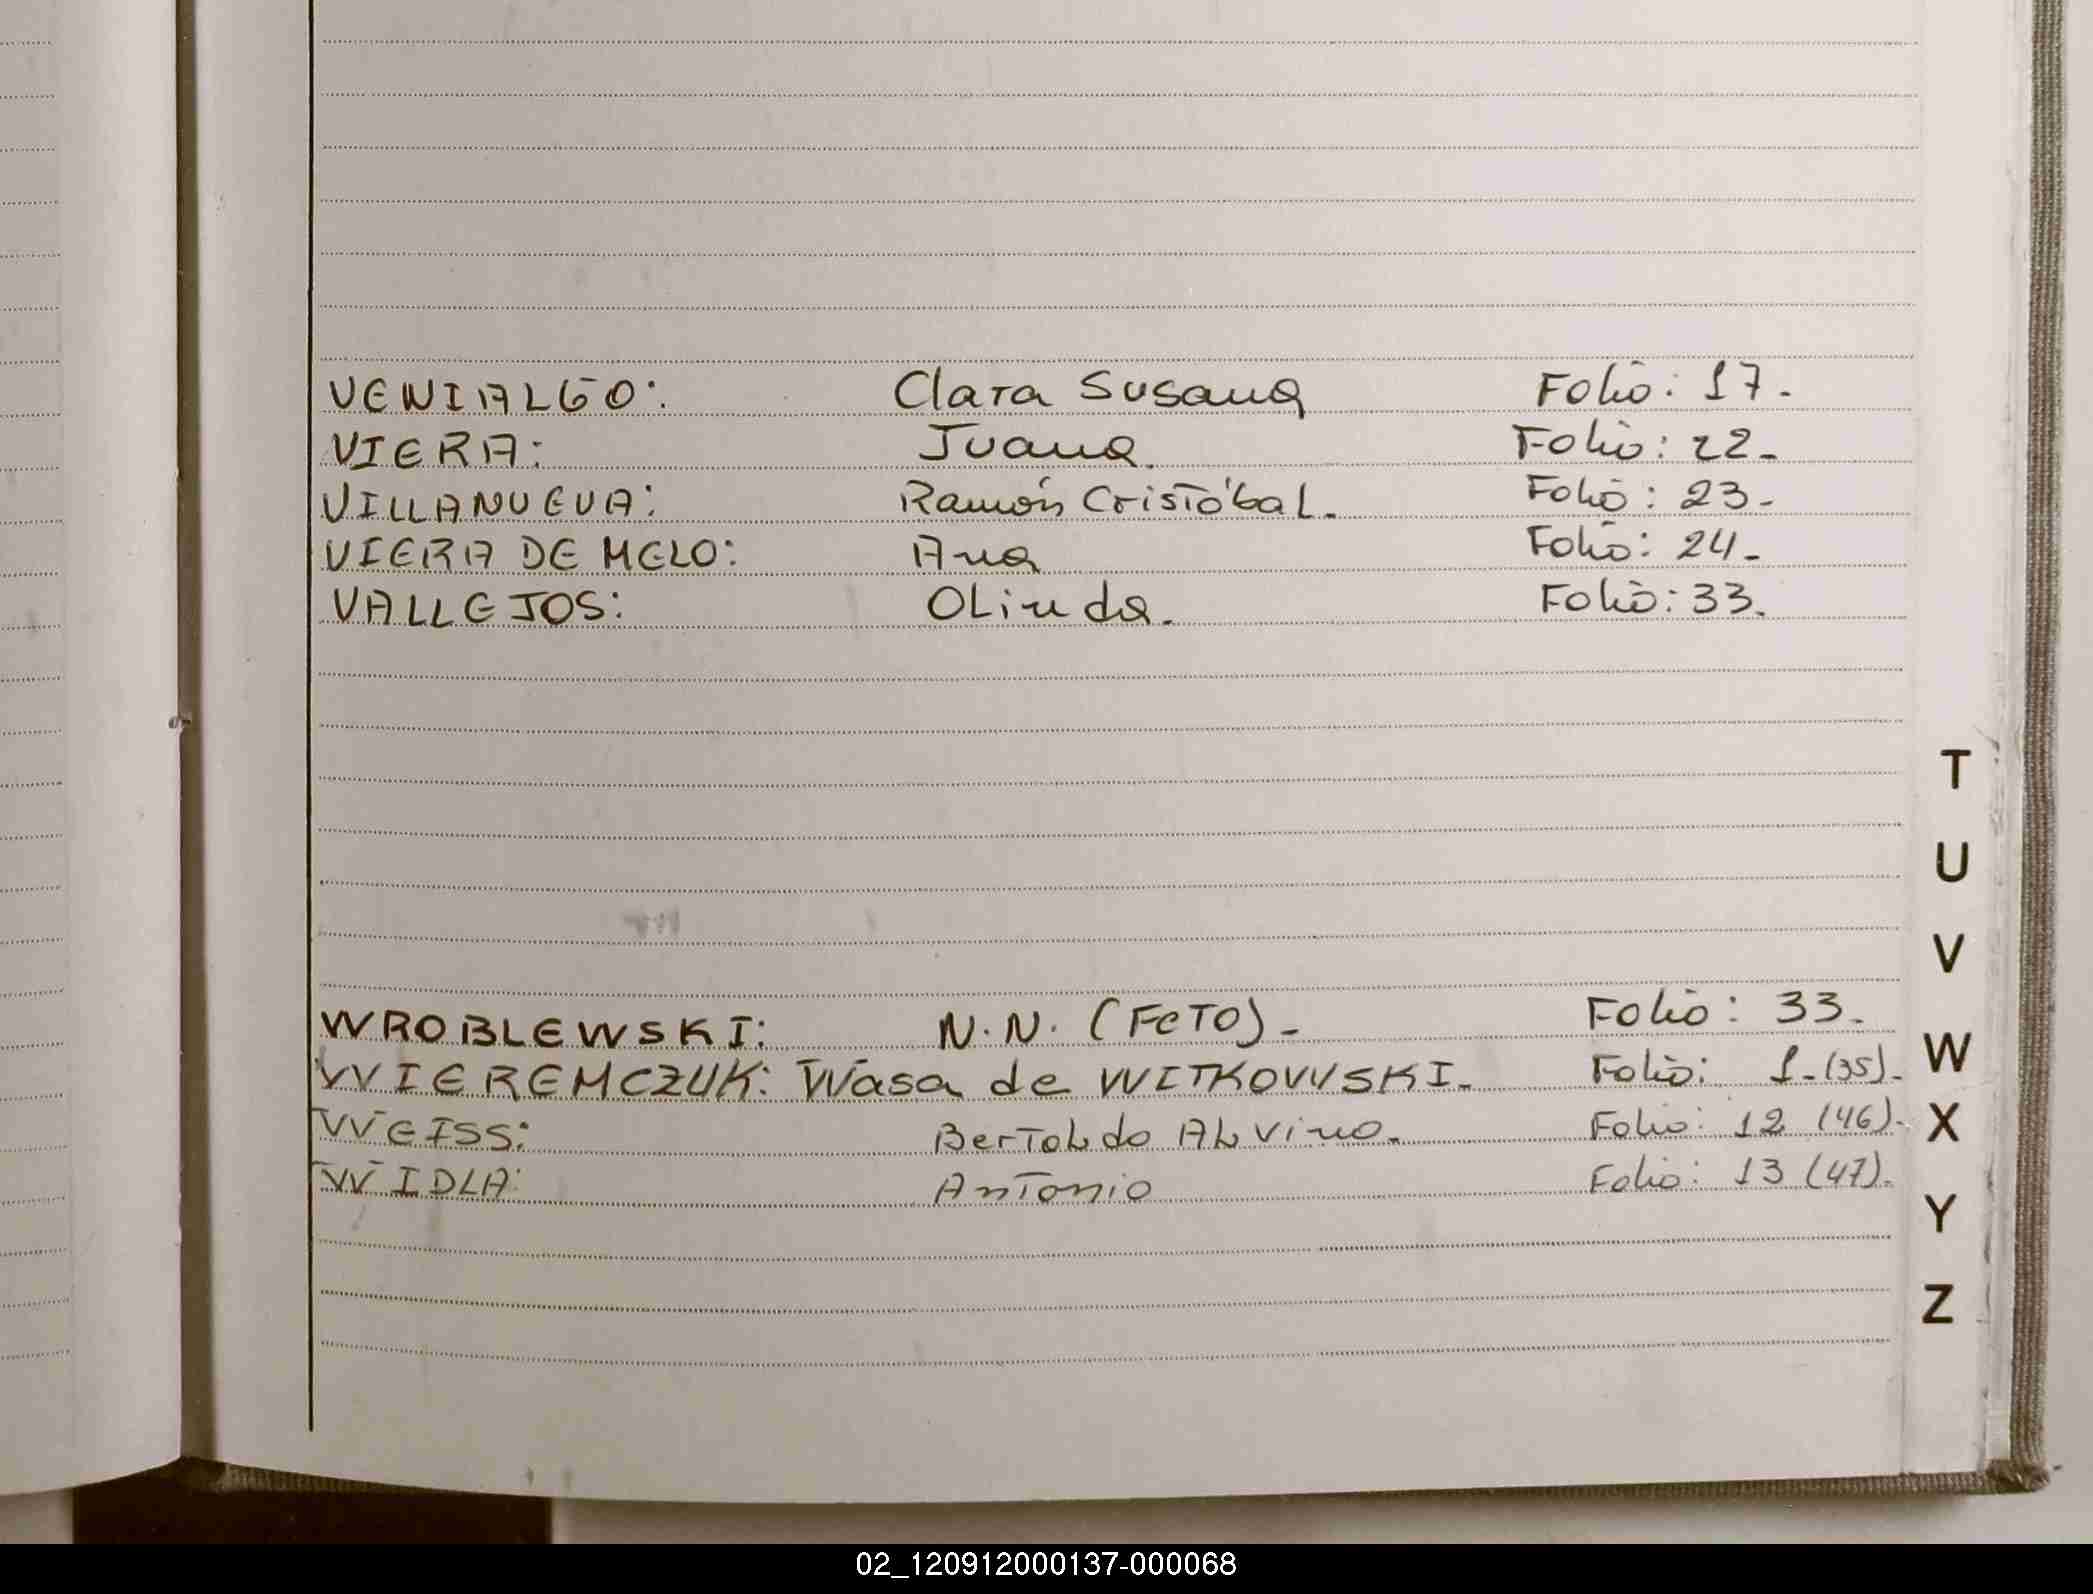 VENIALGO: Clara Susana Folio: 17.
VIERA: Juana. Folio: 22.
VILLANUEVA: Ramón Cristóbal. Folio: 23.
VIERA DE MELO: Ana Folio: 24.
VALLEJOS: Olinda. Folio: 33.
WROBLEWSKI: N.N. (FETO). Folio: 33.
WIEREMCZUK: Wasa de WITKOWSKI. Folio: 1.(35).
WEISS: Bertoldo Alvino. Folio: 12 (46).
WIDLA: Antonio Folio: 13 (47).
T
U
V
W
X
Y
Z
02_120912000137-000068